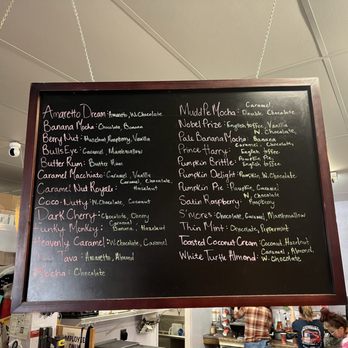 Amaretto Dream: Amaretto, W. Chocolate
Banana Mocha: Chocolate, Banana
Berry Nut: Hazelnut, Raspberry, Vanilla
Bulls Eye: Caramel, Marshmallow
Butter Rum: Butter Rum
Caramel Macchiato: Caramel, Vanilla
Caramel Nut Royale: Caramel, Chocolate, Hazelnut
Coco-Nutty: Coconut, W. Chocolate
Dark Cherry: Chocolate, Cherry
Funky Monkey: Banana, Hazelnut
Heavenly Caramel: W. Chocolate, Caramel
Java: Amaretto, Almond
Mocha: Chocolate
Mud Pie Mocha: Caramel, Double Chocolate
Nobel Prize: English toffee, Vanilla
Pale Banana Mocha: W. Chocolate, Banana
Prince Harry: Caramel, Chocolate, English toffee
Pumpkin Brittle: Pumpkin Pie, English toffee
Pumpkin Delight: Pumpkin Pie, W. Chocolate
Pumpkin Pie: Pumpkin, Caramel
Satin Raspberry: W. Chocolate, Raspberry
S'mores: Chocolate, Caramel, Marshmallow
Thin Mint: Chocolate, Peppermint
Toasted Coconut Cream: Coconut, Hazelnut
White Turtle Almond: Caramel, Almond, W. Chocolate
EMPLOYEES